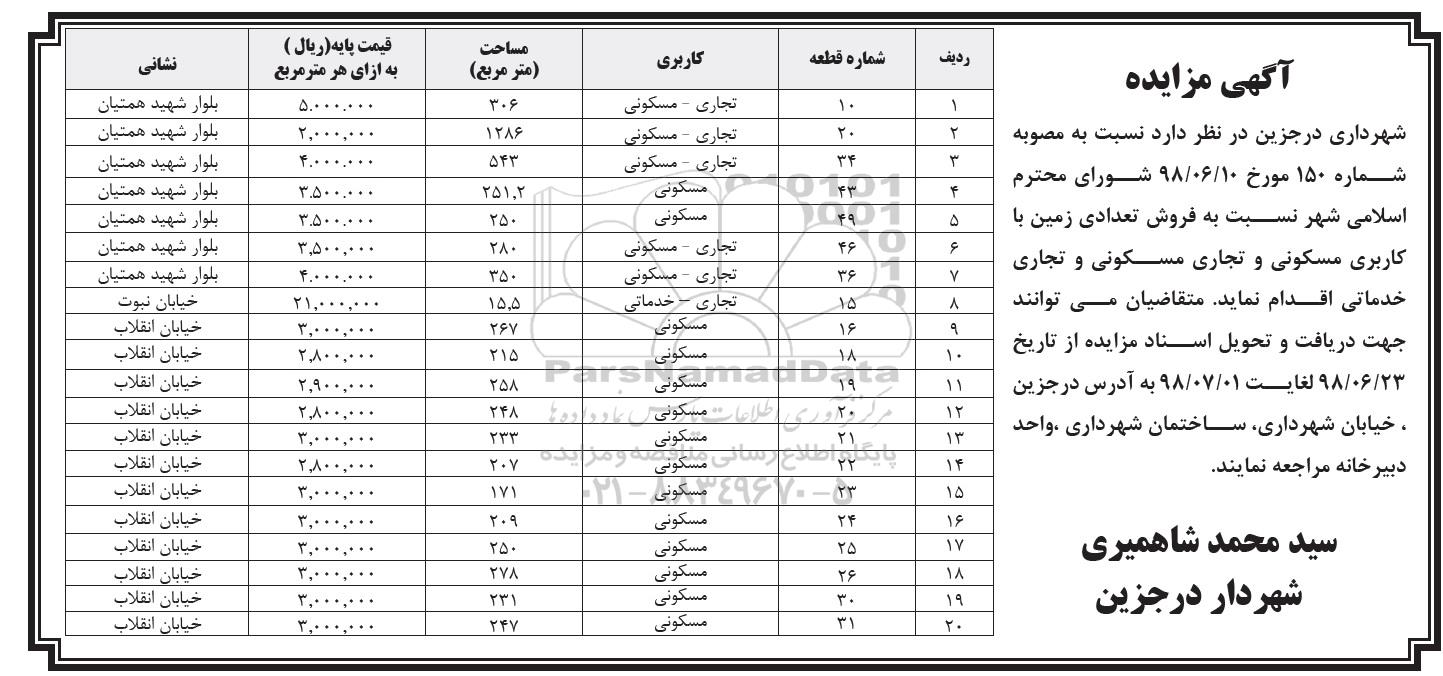 آگهی مزایده
شهرداری درجزین در نظر دارد نسبت به مصوبه
شماره ۱۵۰ مورخ ۹۸/۰۶/۱۰ شورای محترم
اسلامی شهر نسبت به فروش تعدادی زمین با
کاربری مسکونی و تجاری مسکونی و تجاری
خدماتی اقدام نماید. متقاضیان می توانند
جهت دریافت و تحویل اسناد مزایده از تاریخ
۹۸/۰۶/۲۳ لغایت ۹۸/۰۷/۰۱ به آدرس درجزین
، خیابان شهرداری، ساختمان شهرداری ،واحد
دبیرخانه مراجعه نمایند.
سید محمد شاهمیری
شهردار درجزین
ردیف شماره قطعه کاربری مساحت (متر مربع) قیمت پایه(ریال ) به ازای هر مترمربع نشانی
۱ ۱۰ تجاری - مسکونی ۳۰۶ ۵.۰۰۰.۰۰۰ بلوار شهید همتیان
۲ ۲۰ تجاری - مسکونی ۱۲۸۶ ۲,۰۰۰,۰۰۰ بلوار شهید همتیان
۳ ۳۴ تجاری - مسکونی ۵۴۳ ۴.۰۰۰.۰۰۰ بلوار شهید همتیان
۴ ۴۳ مسکونی ۲۵۱,۲ ۳.۵۰۰.۰۰۰ بلوار شهید همتیان
۵ ۴۹ مسکونی ۲۵۰ ۳.۵۰۰.۰۰۰ بلوار شهید همتیان
۶ ۴۶ تجاری - مسکونی ۲۸۰ ۳,۵۰۰,۰۰۰ بلوار شهید همتیان
۷ ۳۶ تجاری - مسکونی ۳۵۰ ۴.۰۰۰.۰۰۰ بلوار شهید همتیان
۸ ۱۵ تجاری – خدماتی ۱۵,۵ ۲۱,۰۰۰,۰۰۰ خیابان نبوت
۹ ۱۶ مسکونی ۲۶۷ ۳,۰۰۰,۰۰۰ خیابان انقلاب
۱۰ ۱۸ مسکونی ۲۱۵ ۲,۸۰۰,۰۰۰ خیابان انقلاب
۱۱ ۱۹ مسکونی ۲۵۸ ۲,۹۰۰,۰۰۰ خیابان انقلاب
۱۲ ۲۰ مسکونی ۲۴۸ ۲,۸۰۰,۰۰۰ خیابان انقلاب
۱۳ ۲۱ مسکونی ۲۳۳ ۳,۰۰۰,۰۰۰ خیابان انقلاب
۱۴ ۲۲ مسکونی ۲۰۷ ۲,۸۰۰,۰۰۰ خیابان انقلاب
۱۵ ۲۳ مسکونی ۱۷۱ ۳,۰۰۰,۰۰۰ خیابان انقلاب
۱۶ ۲۴ مسکونی ۲۰۹ ۳,۰۰۰,۰۰۰ خیابان انقلاب
۱۷ ۲۵ مسکونی ۲۵۰ ۳,۰۰۰,۰۰۰ خیابان انقلاب
۱۸ ۲۶ مسکونی ۲۷۸ ۳,۰۰۰,۰۰۰ خیابان انقلاب
۱۹ ۳۰ مسکونی ۲۳۱ ۳,۰۰۰,۰۰۰ خیابان انقلاب
۲۰ ۳۱ مسکونی ۲۴۷ ۳,۰۰۰,۰۰۰ خیابان انقلاب
ParsNamadData
مرکز فرآوری اطلاعات پارس نماد داده ها
پایگاه اطلاع رسانی مناقصه و مزایده
۰۲۱-۸۸۳۴۹۶۷۰-۵